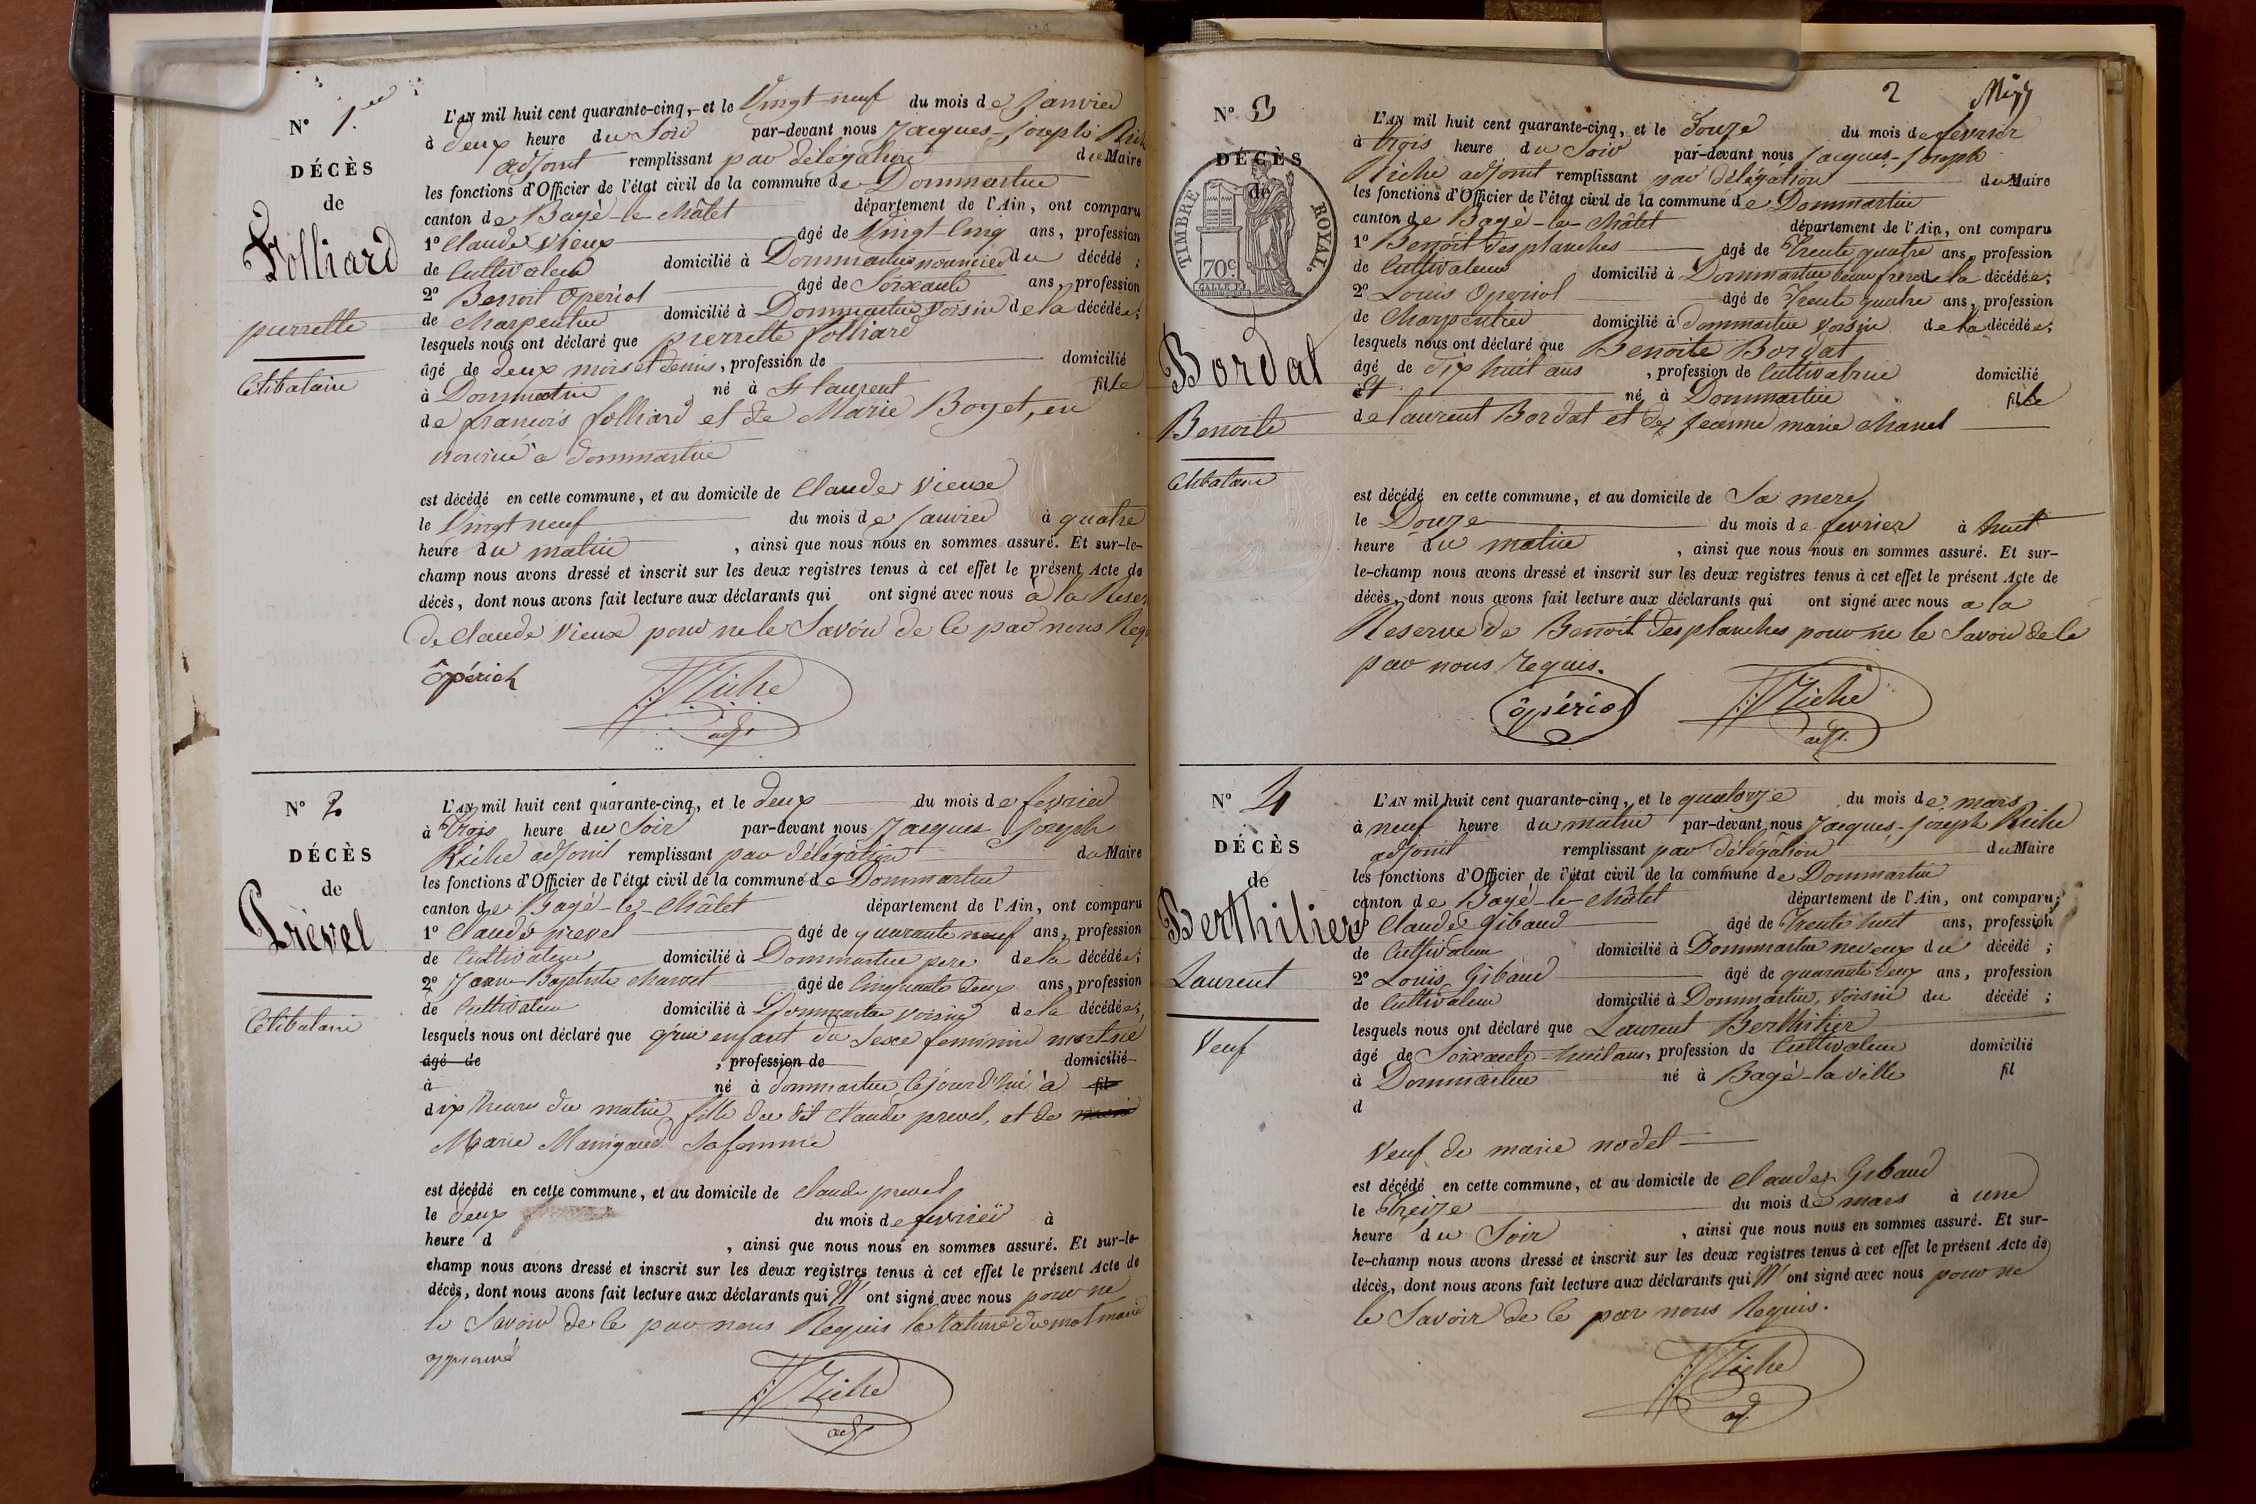 N° 1.er
DÉCÈS
de
Folliard
pierrette
Célibataire
L'AN mil huit cent quarante-cinq, et le Vingt neuf du mois de Janvier
à deux heure du Soir par-devant nous Jacques-Joseph Rich
adjoint remplissant par délégation du Maire
les fonctions d'Officier de l'état civil de la commune de Dommartin
canton de Bagé-le-Châtel département de l'Ain, ont comparu
1° Claude Vieux âgé de Vingt Cinq ans, profession
de Cultivateur domicilié à Dommartin nourricier du décédé ;
2° Benoit Opériol âgé de Soixante ans, profession
de Charpentier domicilié à Dommartin Voisin de la décédée ;
lesquels nous ont déclaré que pierrette folliard
âgé de deux mois et demis, profession de domicilié
à Dommartin né à St laurent fille
de françois folliard et de Marie Boyet, en
nourrice à dommartin
est décédé en cette commune, et au domicile de Claude Vieux
le Vingt neuf du mois de Janvier à quatre
heure du matin, ainsi que nous nous en sommes assuré. Et sur-le-
champ nous avons dressé et inscrit sur les deux registres tenus à cet effet le présent Acte de
décès, dont nous avons fait lecture aux déclarants qui ont signé avec nous à la Reser
de Claude Vieux pour ne le Savoir de ce par nous Requ
ôpériol Riche
adj.
N° 2
DÉCÈS
de
Prével
Célibataire
L'AN mil huit cent quarante-cinq, et le deux du mois de fevrier
à trois heure du Soir par-devant nous Jacques Joseph
Riche adjoint remplissant par délégation du Maire
les fonctions d'Officier de l'état civil de la commune de Dommartin
canton de Bagé-le-Châtel département de l'Ain, ont comparu
1° Claude prevel âgé de quarante neuf ans, profession
de Cultivateur domicilié à Dommartin pere de la décédée ;
2° Jean-Baptiste Charvet âgé de Cinquante deux ans, profession
de Cultivateur domicilié à Dommartin voisin de la décédée ;
lesquels nous ont déclaré que qu'un enfant du Sexe feminin mort né
âgé de , profession de domicilié
à né à dommartin Cejourd'hui à fil
dix heures du matin, fille du dit Claude prevel, et de marie
Marie Manigand Sa femme
est décédé en cette commune, et au domicile de Claude prevel
le deux du mois de fevrier à
heure d , ainsi que nous nous en sommes assuré. Et sur-le-
champ nous avons dressé et inscrit sur les deux registres tenus à cet effet le présent Acte de
décès, dont nous avons fait lecture aux déclarants qui N' ont signé avec nous pour ne
le Savoir de ce par nous Requis la Rature du mot marie
approuvé
Riche
adj.
2
N° 3
DÉCÈS
de
TIMBRE ROYAL.
70 c
Bordat
Benoite
Célibataire
L'AN mil huit cent quarante-cinq, et le Douze du mois de février
à trois heure du Soir par-devant nous Jacques-Joseph
Riche adjoint remplissant par délégation du Maire
les fonctions d'Officier de l'état civil de la commune de Dommartin
canton de Bagé-le-Châtel département de l'Ain, ont comparu
1° Benoit Desplanches âgé de Trente quatre ans, profession
de Cultivateur domicilié à Dommartin beau frere de la décédée ;
2° Louis Opériol âgé de Trente quatre ans, profession
de Charpentier domicilié à dommartin voisin de la décédée ;
lesquels nous ont déclaré que Benoite Bordat
âgé de Dix huit ans , profession de Cultivatrice domicilié
à Et né à Dommartin fille
de laurent Bordat et de Jeanne marie Chanel
est décédé en cette commune, et au domicile de Sa mere
le Douze du mois de fevrier à huit
heure du matin , ainsi que nous nous en sommes assuré. Et sur-
le-champ nous avons dressé et inscrit sur les deux registres tenus à cet effet le présent Acte de
décès, dont nous avons fait lecture aux déclarants qui ont signé avec nous a la
Reserve de Benoit Desplanches pour ne le Savoir de ce
par nous requis.
ôpériol Riche
adj.
N° 4
DÉCÈS
de
Berthilier
Laurent
Veuf
L'AN mil huit cent quarante-cinq, et le quatorze du mois de mars
à neuf heure du matin par-devant nous Jacques-Joseph Riche
adjoint remplissant par délégation du Maire
les fonctions d'Officier de l'état civil de la commune de Dommartin
canton de Bagé-le-Châtel département de l'Ain, ont comparu ;
1° Claude Gibaud âgé de Trente huit ans, profession
de Cultivateur domicilié à Dommartin neveux du décédé ;
2° Louis Gibaud âgé de quarante deux ans, profession
de Cultivateur domicilié à Dommartin, Voisin du décédé ;
lesquels nous ont déclaré que Laurent Berthilier
âgé de Soixante-huit ans, profession de Cultivateur domicilié
à Dommartin né à Bagé-la-ville fil
d
Veuf de marie nodet
est décédé en cette commune, et au domicile de Claude Gibaud
le Treize du mois de mars à une
heure du Soir , ainsi que nous nous en sommes assuré. Et sur-
le-champ nous avons dressé et inscrit sur les deux registres tenus à cet effet le présent Acte de
décès, dont nous avons fait lecture aux déclarants qui N' ont signé avec nous pour ne
le Savoir de ce par nous Requis.
Riche
adj.